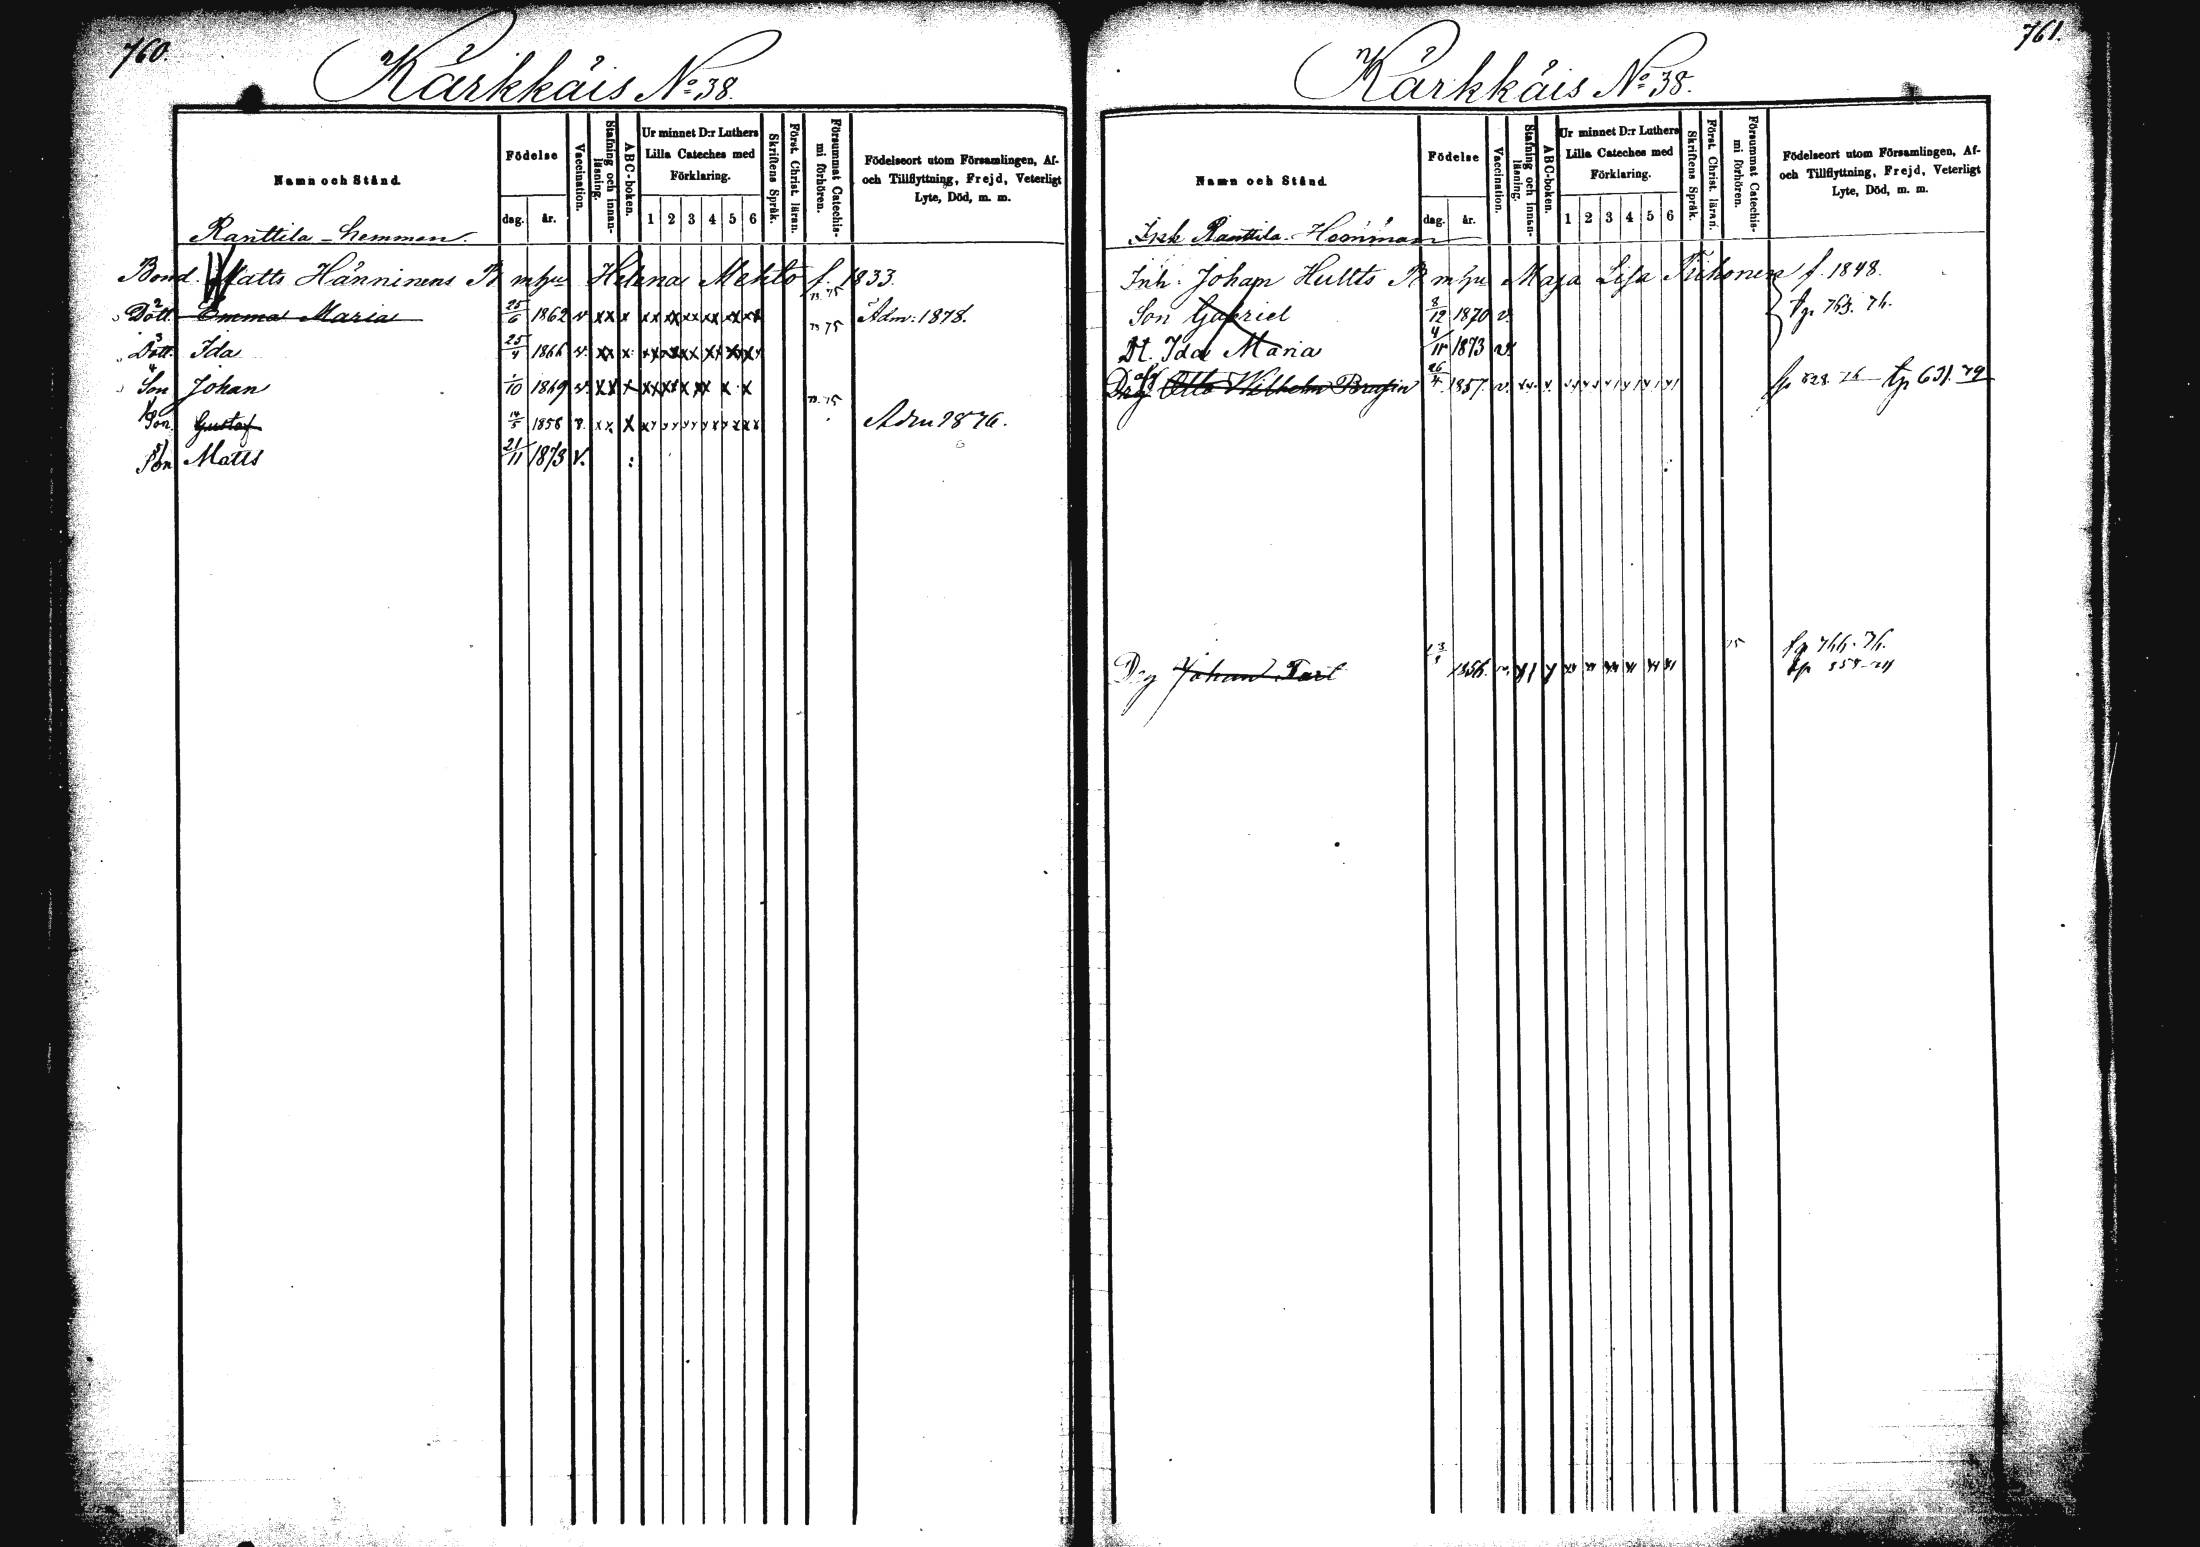 760.
Kärkkäis No 38.
Namn och Stånd.
Födelse
dag. år.
Vaccination.
Stafning och innanläsning.
ABC-boken.
Ur minnet D:r Luthers Lilla Cateches med Förklaring.
1 2 3 4 5 6
Skriftens Språk.
Först. Christ. läran.
Försummat Catechismi förhören.
Födelseort utom Församlingen, Af-
och Tillflyttning, Frejd, Veterligt
Lyte, Död, m. m.
Ranttila - hemman.
Bond. Matts Hänninens B m hu Helena Mehto f. 1833.
2 Dott. Emma Maria 25/6 1862 v xx x xx xx xx xx xx xx 75 Adm: 1878.
3 Dott. Ida 25/4 1866 v. xx x xx xx xx xx xx 75
4 Son Johan 1/10 1869 v. xx x xx xx x xx x x
Son. Gustaf 14/5 1856 v. xx x 75 Adm 1876.
5 Son Matts 21/11 1873 v.
761.
Kärkkäis No 38.
Namn och Stånd
Födelse
dag. år.
Vaccination.
Stafning och innanläsning.
ABC-boken.
Ur minnet D:r Luthers Lilla Cateches med Förklaring.
1 2 3 4 5 6
Skriftens Språk.
Först. Christ. läran.
Försummat Catechismi förhören.
Födelseort utom Församlingen, Af-
och Tillflyttning, Frejd, Veterligt
Lyte, Död, m. m.
Ranttila - Hemman
Inh. Johan Hults B m hu Maja Lisa f. 1848.
Son Gabriel 8/12 1870 v. 763. 76.
Dt. Ida Maria 4/11 1873 v.
Drg Otto Wilhelm 26/4 1857 v. 828. 76 631. 79
Drg Johan 1856. v. 75 766. 76.